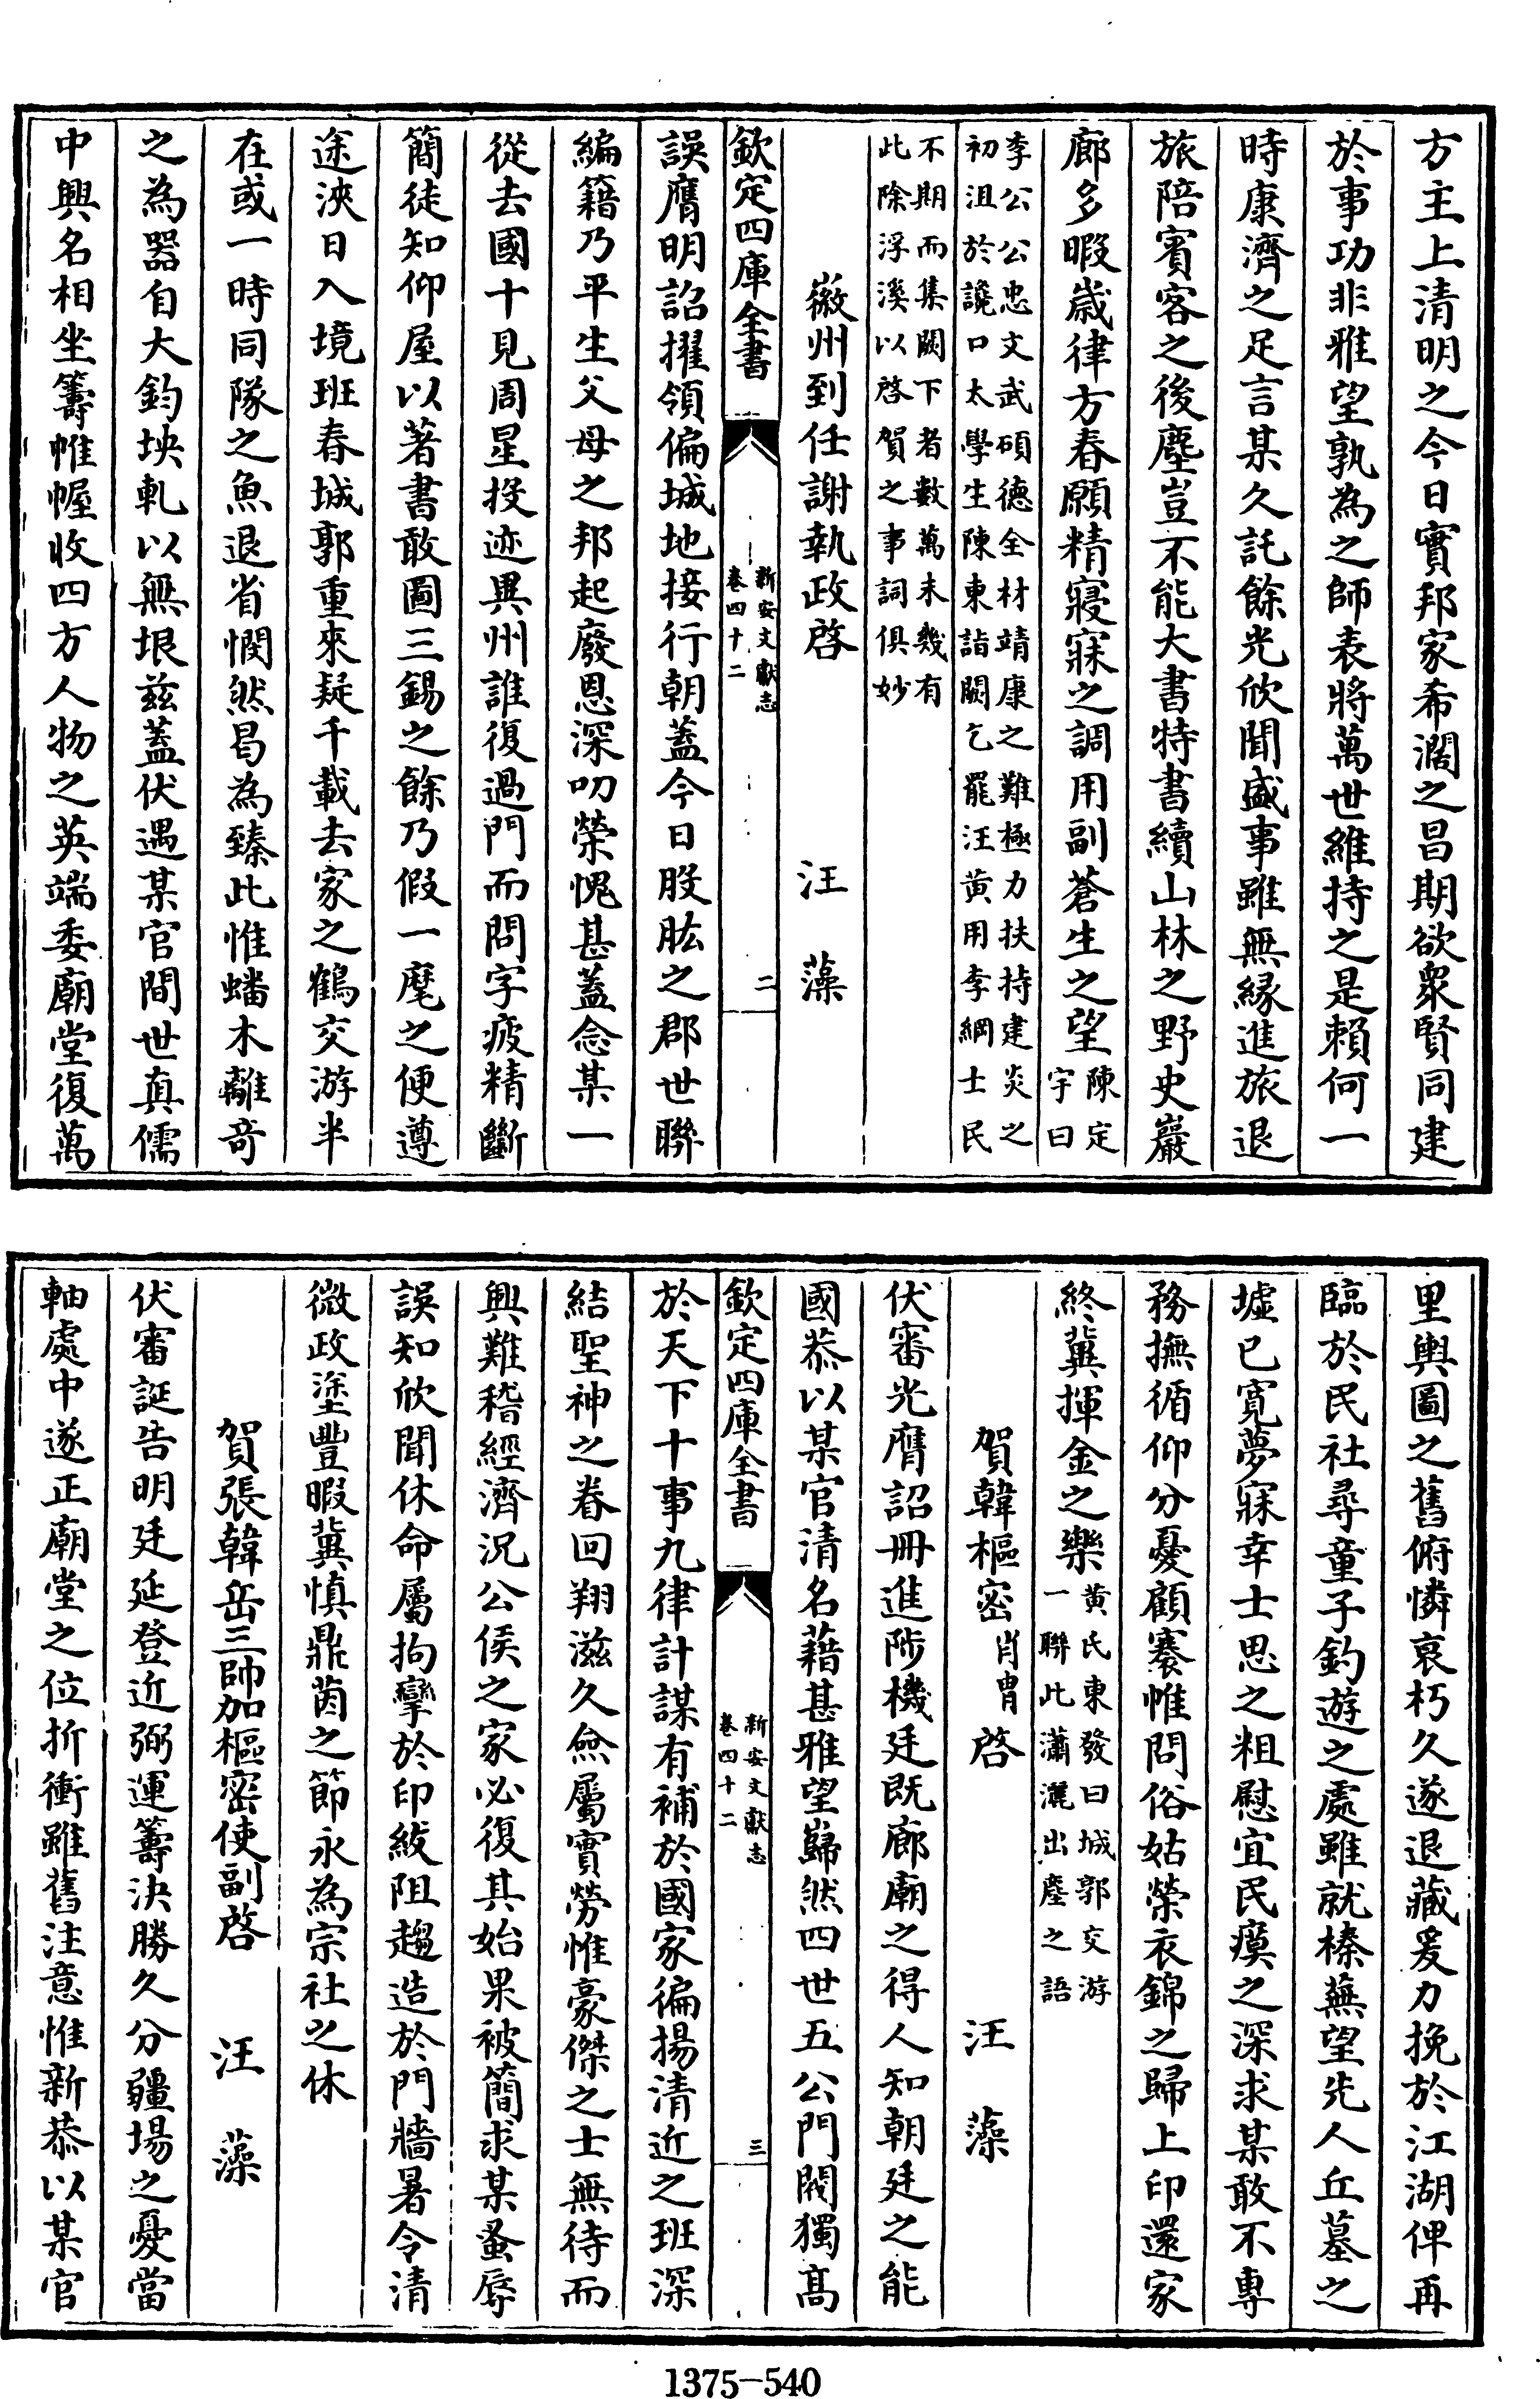 方主上清明之今日實邦家希濶之昌期欲衆賢同建
於事功非雅望孰為之師表將萬世維持之是賴何一
時康濟之足言某久託餘光欣聞盛事雖無緣進旅退
旅陪賓客之後塵豈不能大書特書續山林之野史巖
廊多暇嵗律方春願精寢寐之調用副蒼生之望陳定
宇曰
李公公忠文武碩德全材靖康之難極力扶持建炎之
初沮於讒口太學生陳東詣闕乞罷汪黄用李綱士民
不期而集闕下者數萬未幾有
此除浮溪以啓賀之事詞俱妙
徽州到任謝執政啓　汪藻
欽定四庫全書
新安文獻志
卷四十二
二
誤膺明詔擢領偏城地接行朝蓋今日股肱之郡世聯
編籍乃平生父母之邦起廢恩深叨榮愧甚蓋念某一
從去國十見周星投迹異州誰復過門而問字疲精斷
簡徒知仰屋以著書敢圖三錫之餘乃假一麾之便遵
途浹日入境班春城郭重來疑千載去家之鶴交游半
在或一時同隊之魚退省憫然曷為臻此惟蟠木離竒
之為器自大鈞坱軋以無垠兹蓋伏遇某官間世真儒
中興名相坐籌帷幄收四方人物之英端委廟堂復萬
里輿圖之舊俯憐衰朽久遂退藏爰力挽於江湖俾再
臨於民社尋童子釣遊之處雖就榛蕪望先人丘墓之
墟已寛夢寐幸士思之粗慰宜民瘼之深求某敢不專
務撫循仰分憂顧褰惟問俗姑榮衣錦之歸上印還家
終冀揮金之樂黄氏東發曰城郭交游
一聯此瀟灑出塵之語
賀韓樞密肖胄啓　汪藻
伏審光膺詔冊進陟機廷既廊廟之得人知朝廷之能
國恭以某官清名藉甚雅望巋然四世五公門閥獨髙
欽定四庫全書
新安文獻志
卷四十二
三
於天下十事九律計謀有補於國家徧揚清近之班深
結聖神之眷回翔滋久僉屬實勞惟豪傑之士無待而
興難稽經濟况公侯之家必復其始果被簡求某蚤辱
誤知欣聞休命屬拘攣於印紱阻趨造於門牆暑令清
微政塗豐暇冀慎鼎茵之節永為宗社之休
賀張韓岳三帥加樞密使副啓　汪藻
伏審誕告明廷延登近弼運籌決勝久分疆場之憂當
軸處中遂正廟堂之位折衝雖舊注意惟新恭以某官
1375-540